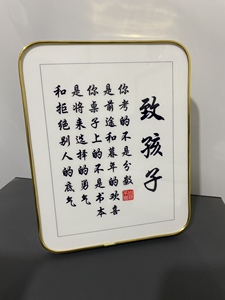 致孩子
你考的不是分数
是前途和暮年的欢喜
你桌子上的不是书本
是将来选择的勇气
和拒绝别人的底气